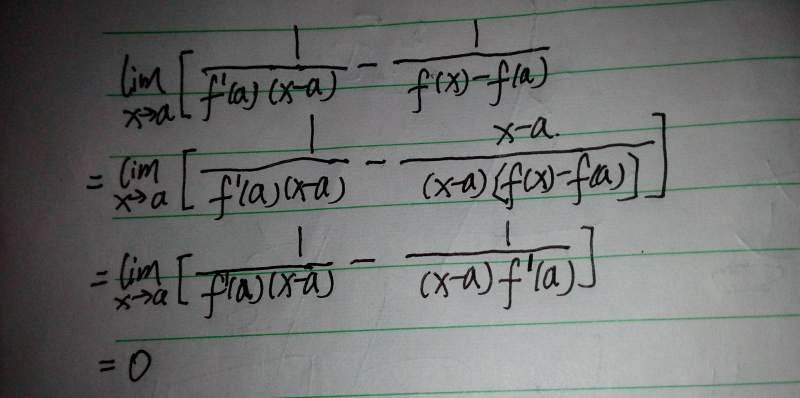 lim x→a [ 1/(f'(a)(x-a)) - 1/(f(x)-f(a))
= lim x→a [ 1/(f'(a)(x-a)) - (x-a.)/((x-a)[f(x)-f(a)]) ]
= lim x→a [ 1/(f'(a)(x-a)) - 1/((x-a)f'(a)) ]
= 0